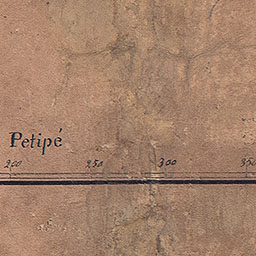 Petipé
200 250 300 350